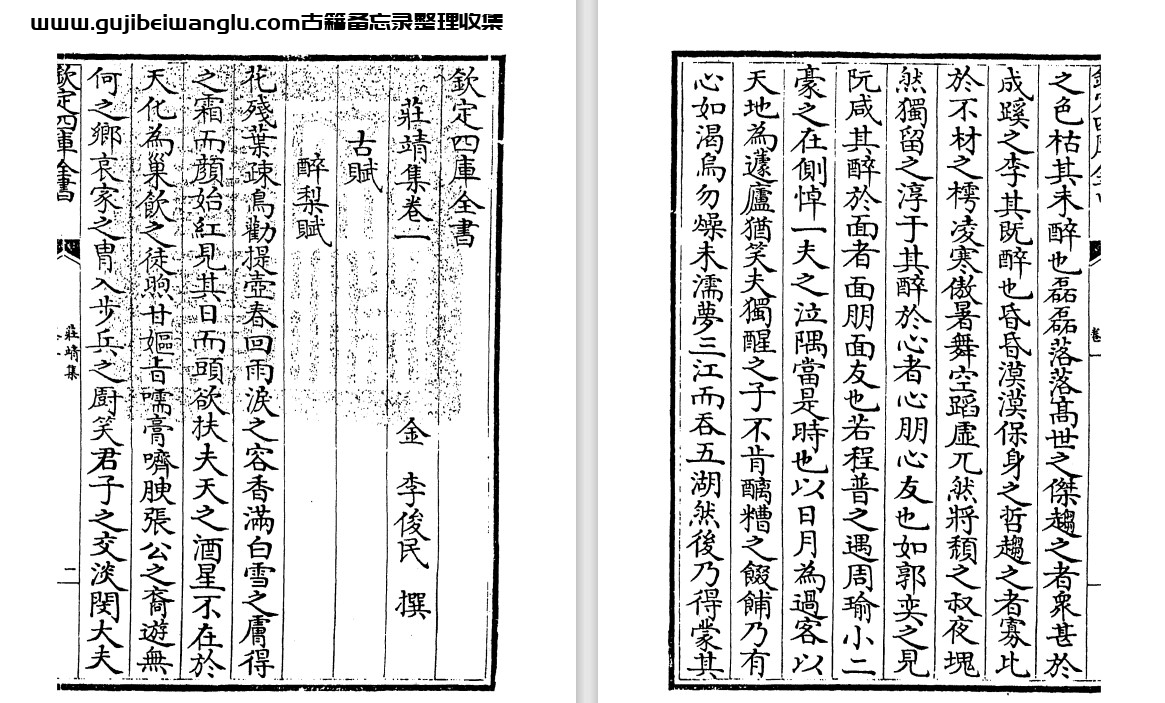 www.gujibeiwanglu.com古籍备忘录整理收集
欽定四庫全書
莊靖集卷一
金 李俊民 撰
古賦
醉梨賦
花殘葉疎鳥勸提壺春回雨淚之容香滿白雪之膚得
之霜而顔始紅見其日而頭欲扶夫天之酒星不在於
天化為巢飲之徒喣甘嫗旨嚅膏嚌腴張公之裔遊無
何之鄉哀家之胄入步兵之厨笑君子之交淡閔大夫
欽定四庫全書
莊靖集
二
之色枯其未醉也磊磊落落髙世之傑趨之者衆甚於
成蹊之李其既醉也昏昏漠漠保身之哲趨之者寡比
於不材之樗凌寒傲暑舞空蹈虛兀然將頽之叔夜塊
然獨留之淳于其醉於心者心朋心友也如郭奕之見
阮咸其醉於面者面朋面友也若程普之遇周瑜小二
豪之在側悼一夫之泣隅當是時也以日月為過客以
天地為蘧廬猶笑夫獨醒之子不肯醨糟之餟餔乃有
心如渇烏勿燥未濡夢三江而吞五湖然後乃得蒙其
卷一